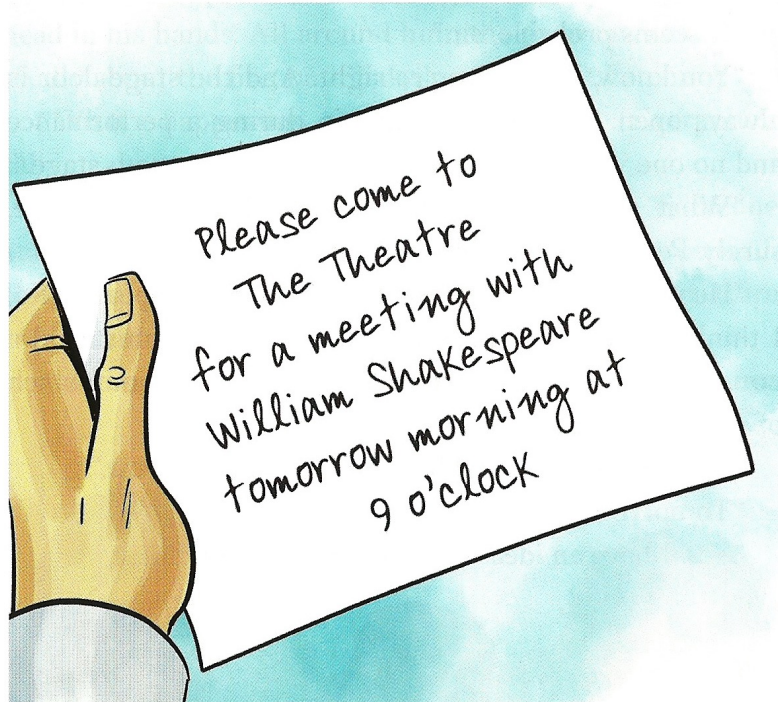 Please come to
The Theatre
for a meeting with
William Shakespeare
tomorrow morning at
9 o'clock